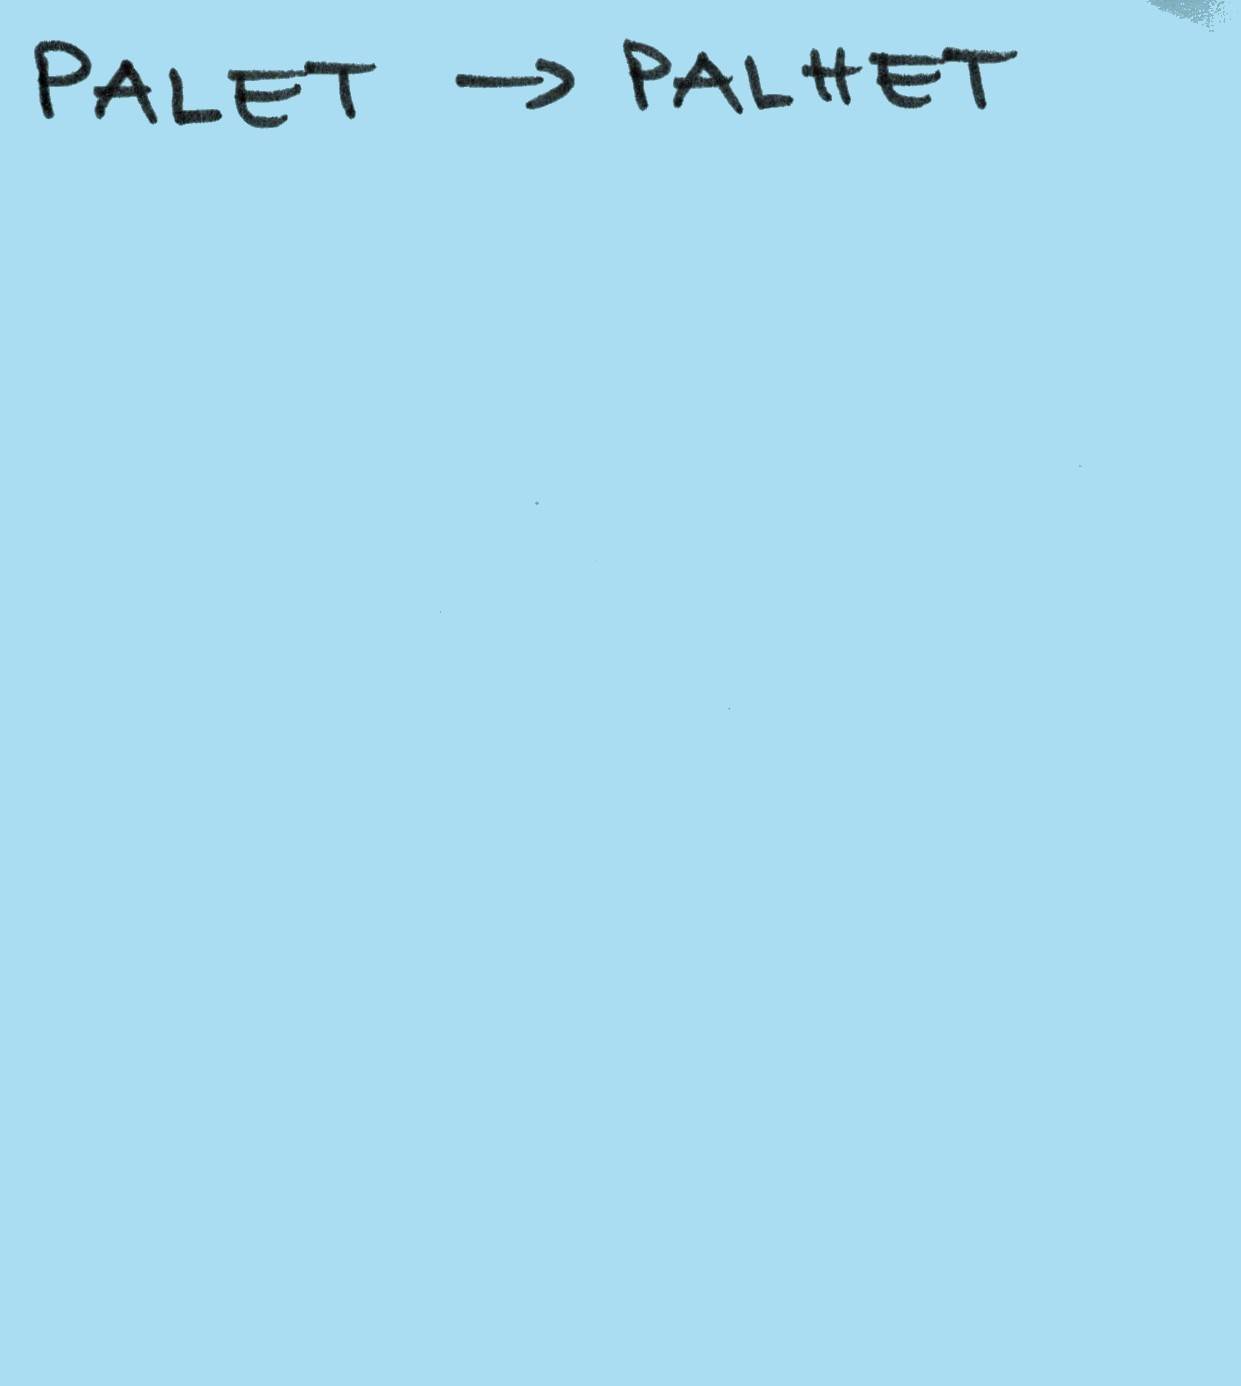 PALET → PALHET